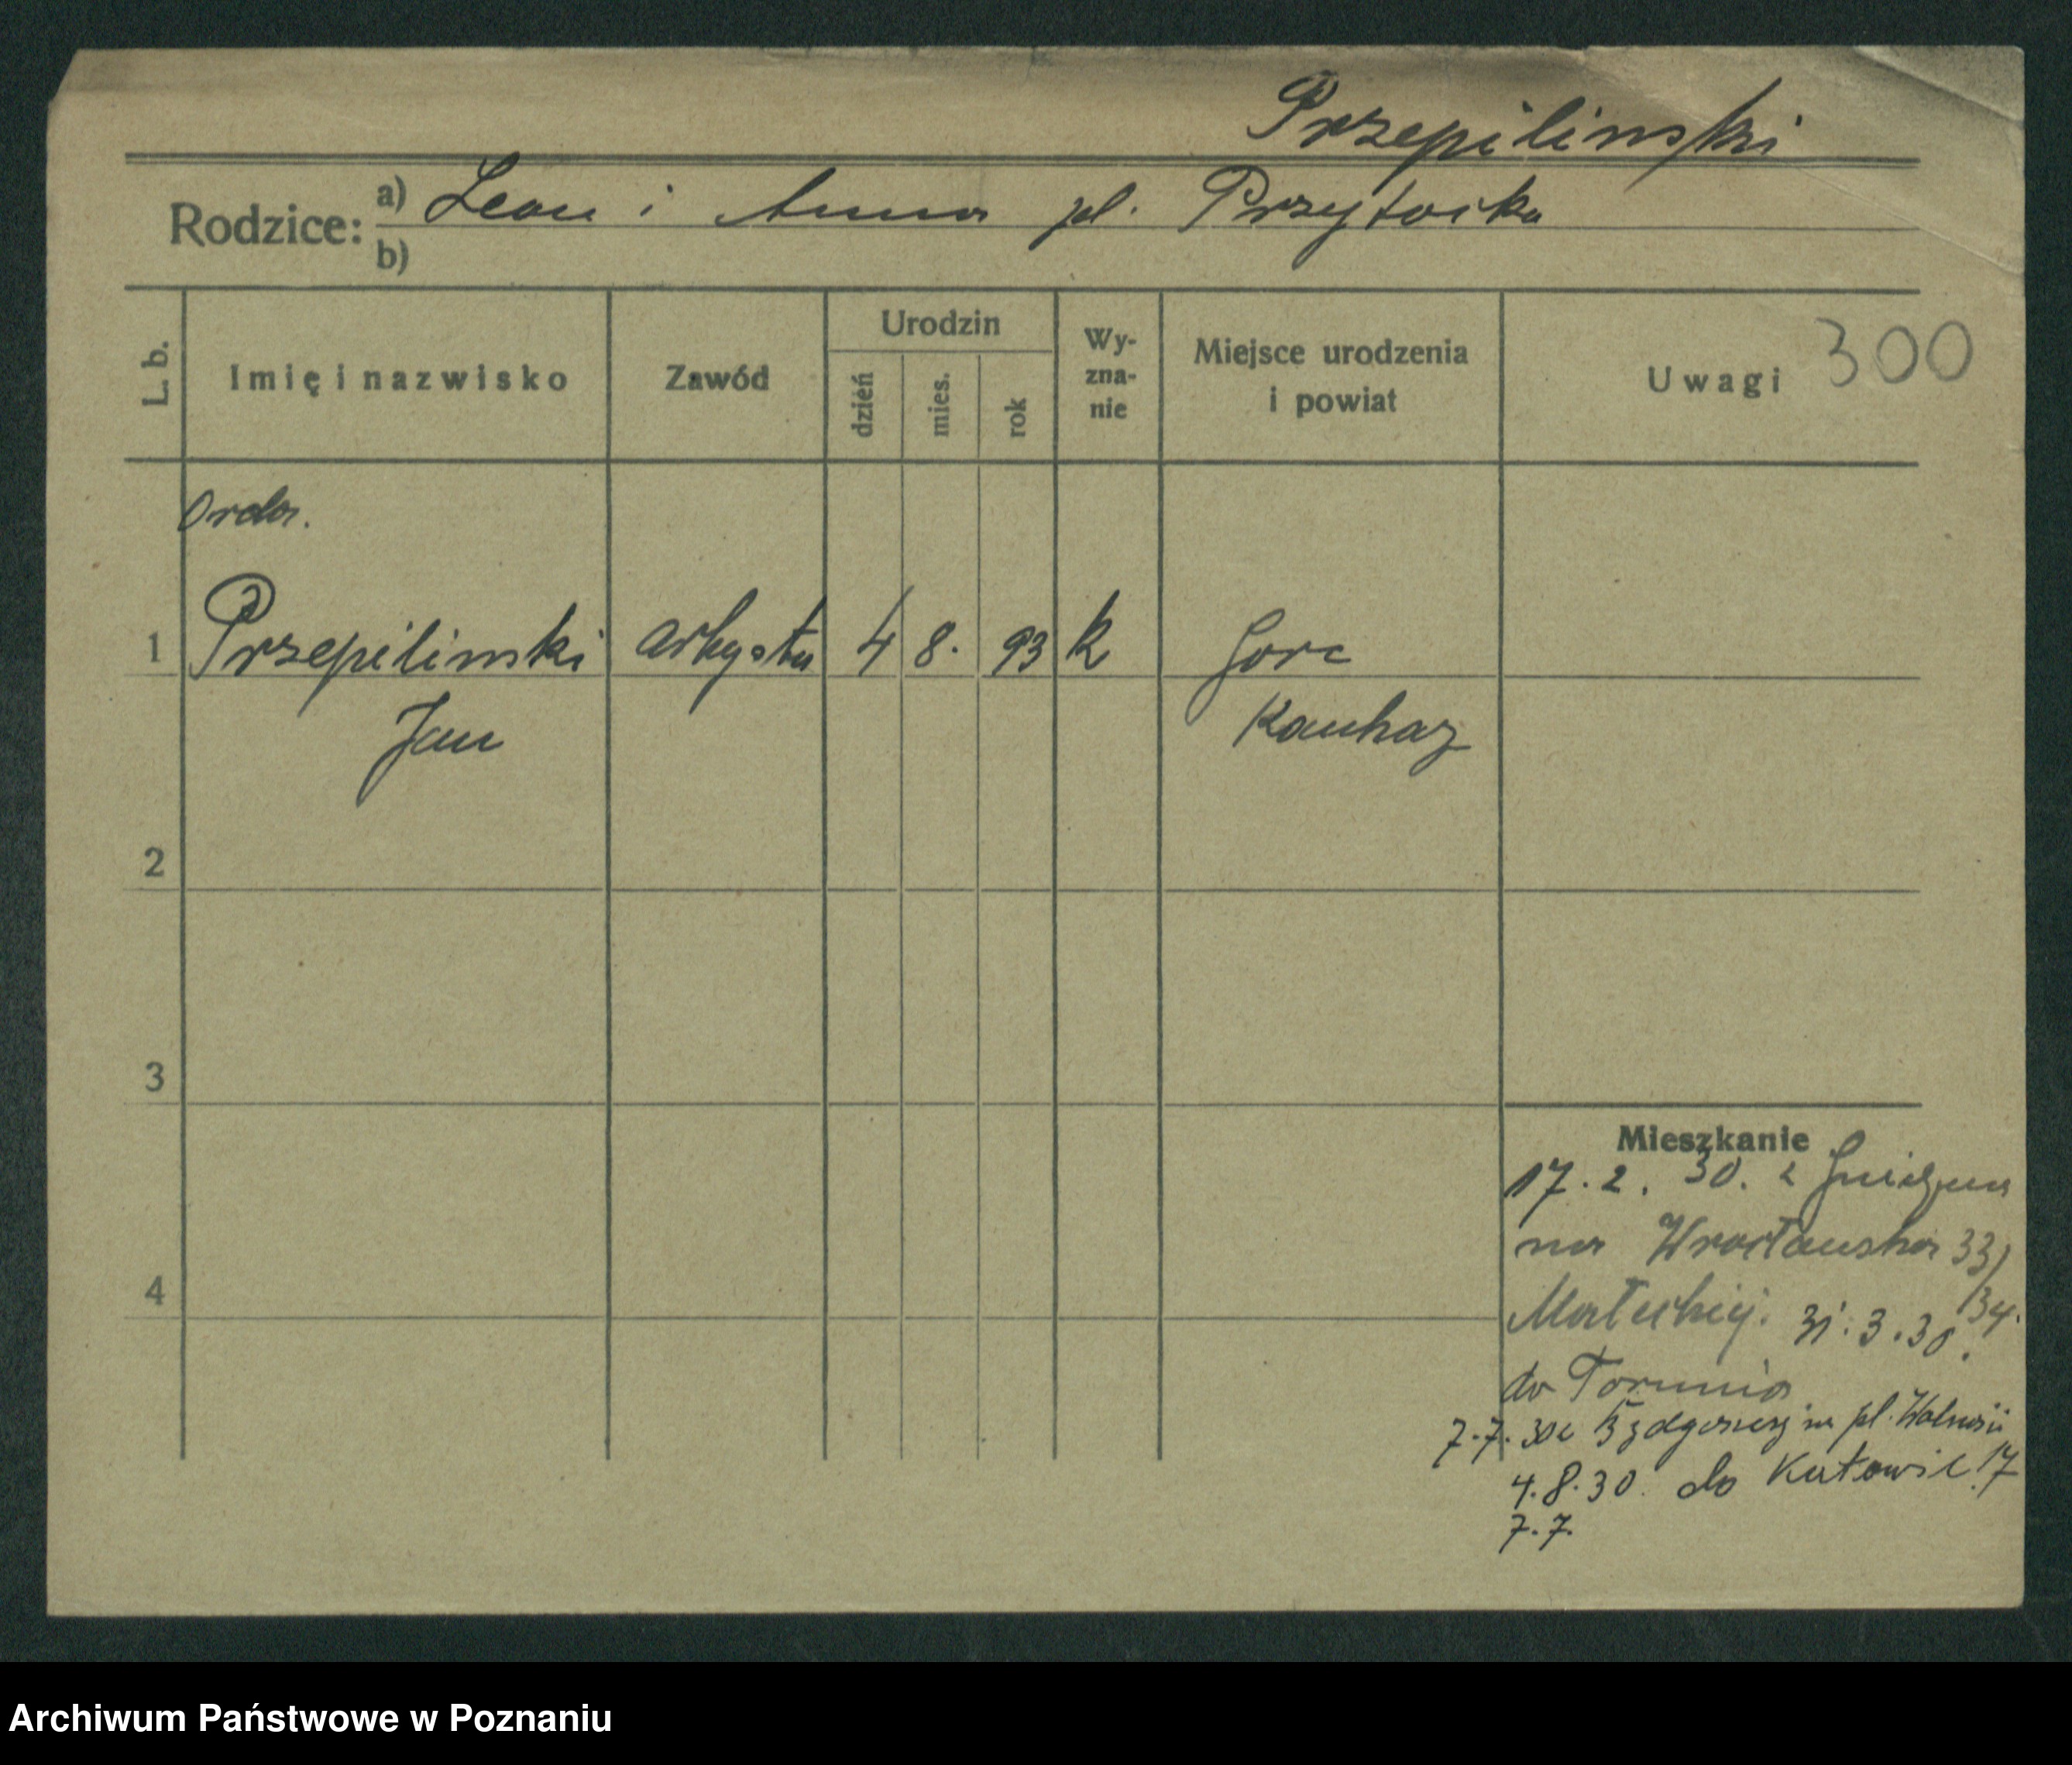 Przepilinski
Rodzice: a) Leon i Anna pl. Przytocka
b)
L. b.
Imię i nazwisko
Zawód
Urodzin
dzień
mies.
rok
Wy-
zna-
nie
Miejsce urodzenia
i powiat
Uwagi 300
1 Przepilinski artysta 4 8. 93 k Gora
Jan
2
3
4
Mieszkanie
17. 2. 30. z Gniezna
na Wrocławska 33/
34.
Małeckiej. 31. 3. 30.
do Torunia
7.7. 30 z Bydgoszczy na pl. Wolności
17
4. 8. 30. do Katowic
7. 7.
Archiwum Państwowe w Poznaniu